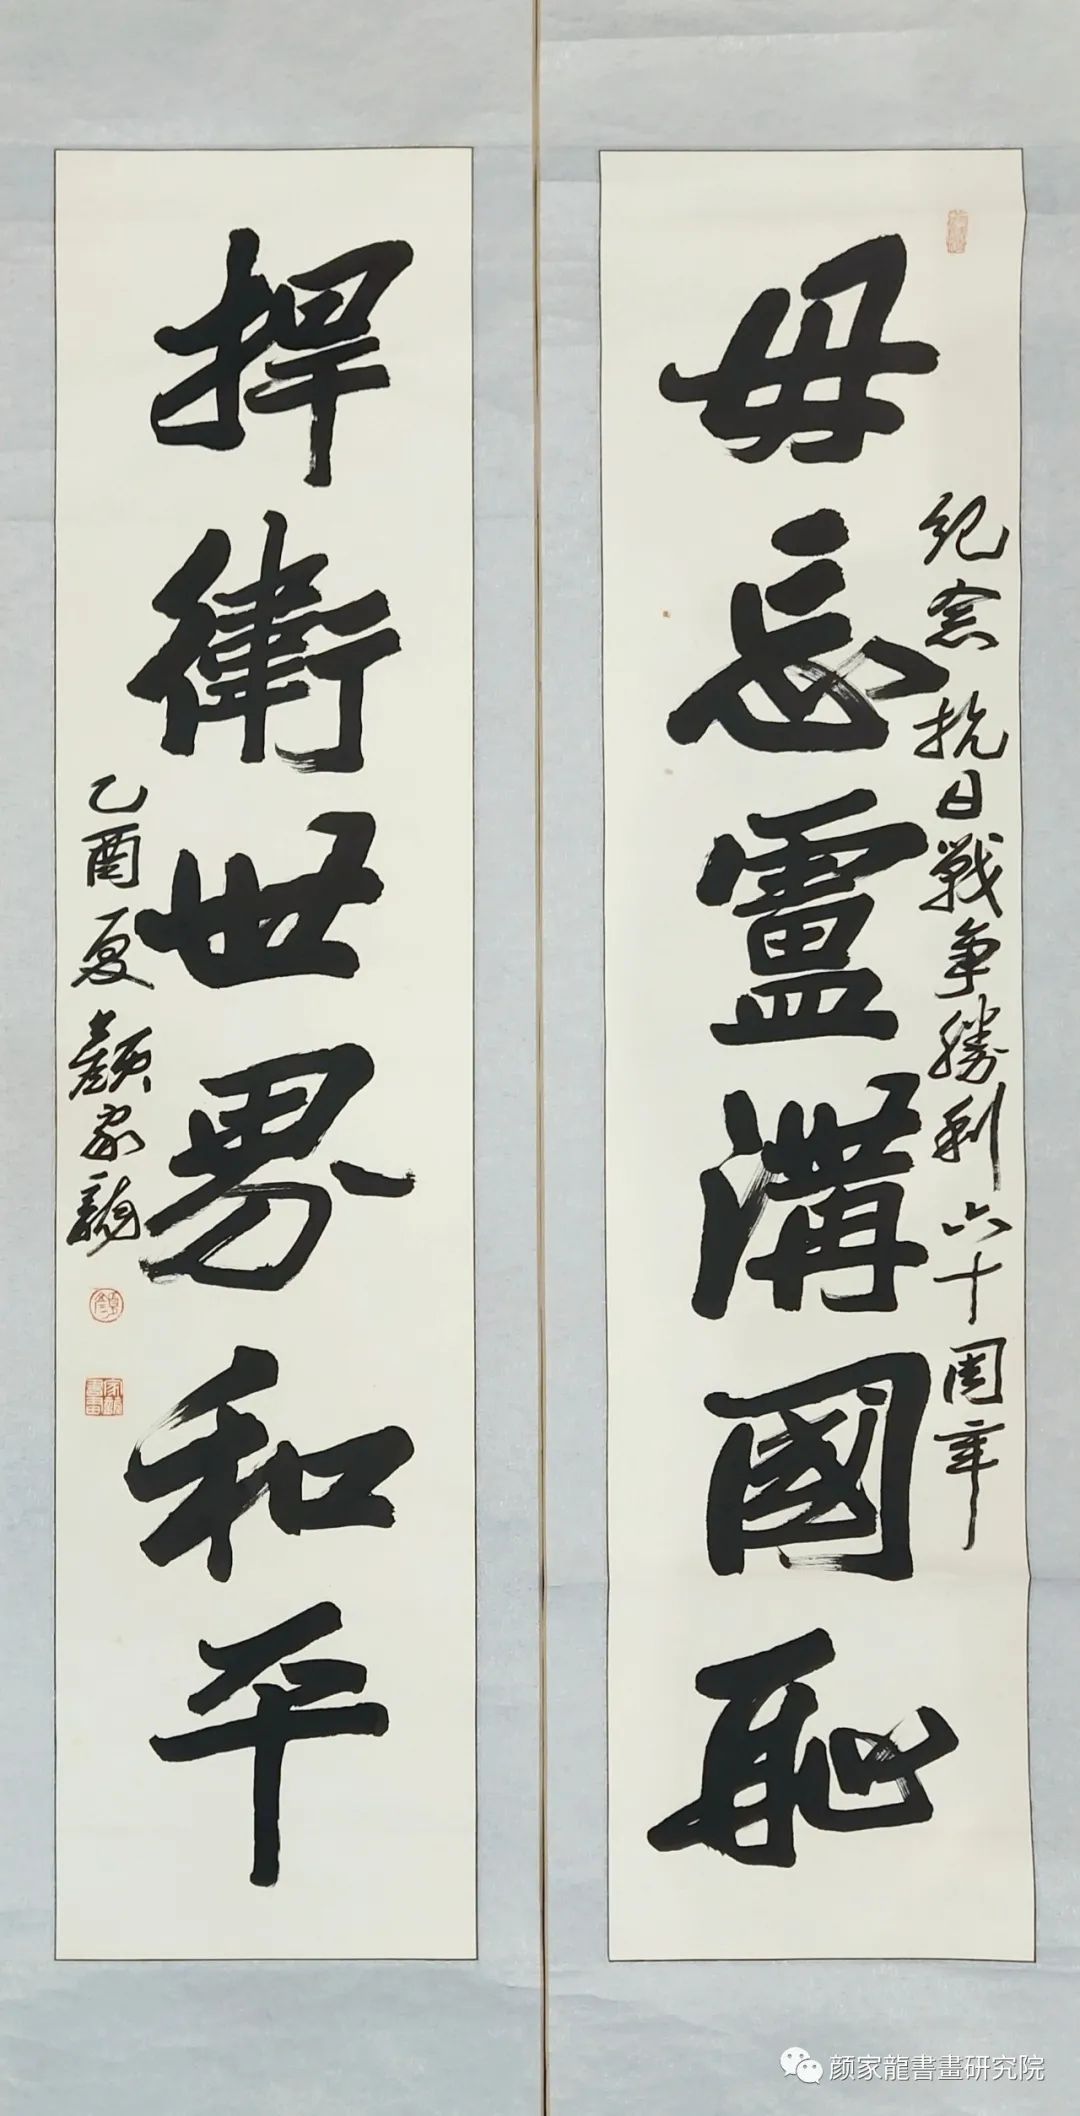 毋忘盧溝國恥
紀念抗日戰爭勝利六十周年
捍衛世界和平
乙酉夏顏家龍
颜家龍書畫研究院